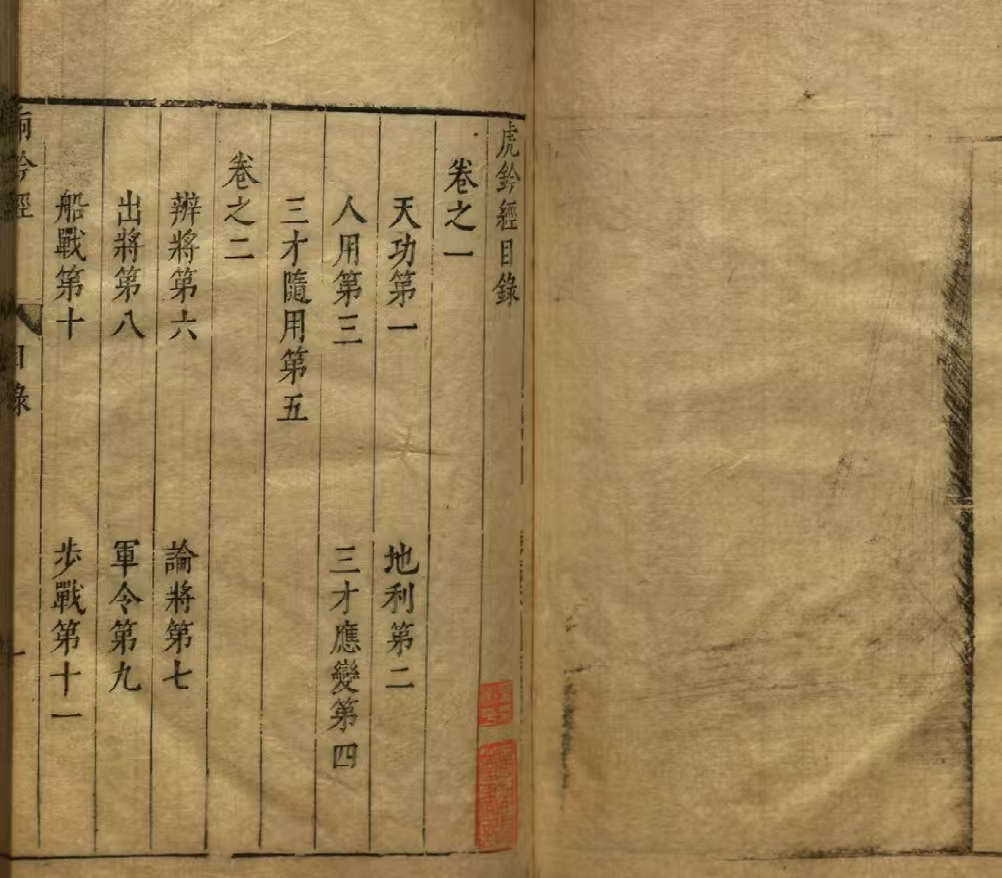 虎鈐經目錄
卷之一
天功第一 地利第二
人用第三 三才應變第四
三才隨用第五
卷之二
辨將第六 論將第七
出將第八 軍令第九
船戰第十 步戰第十一
鈐經 目錄